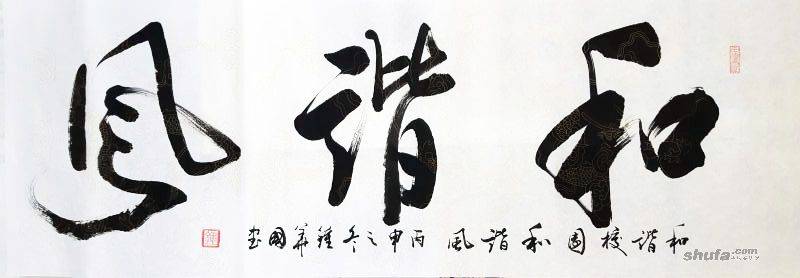 和諧風
和諧校園和諧風丙申之冬鍾華國書
shufa.com